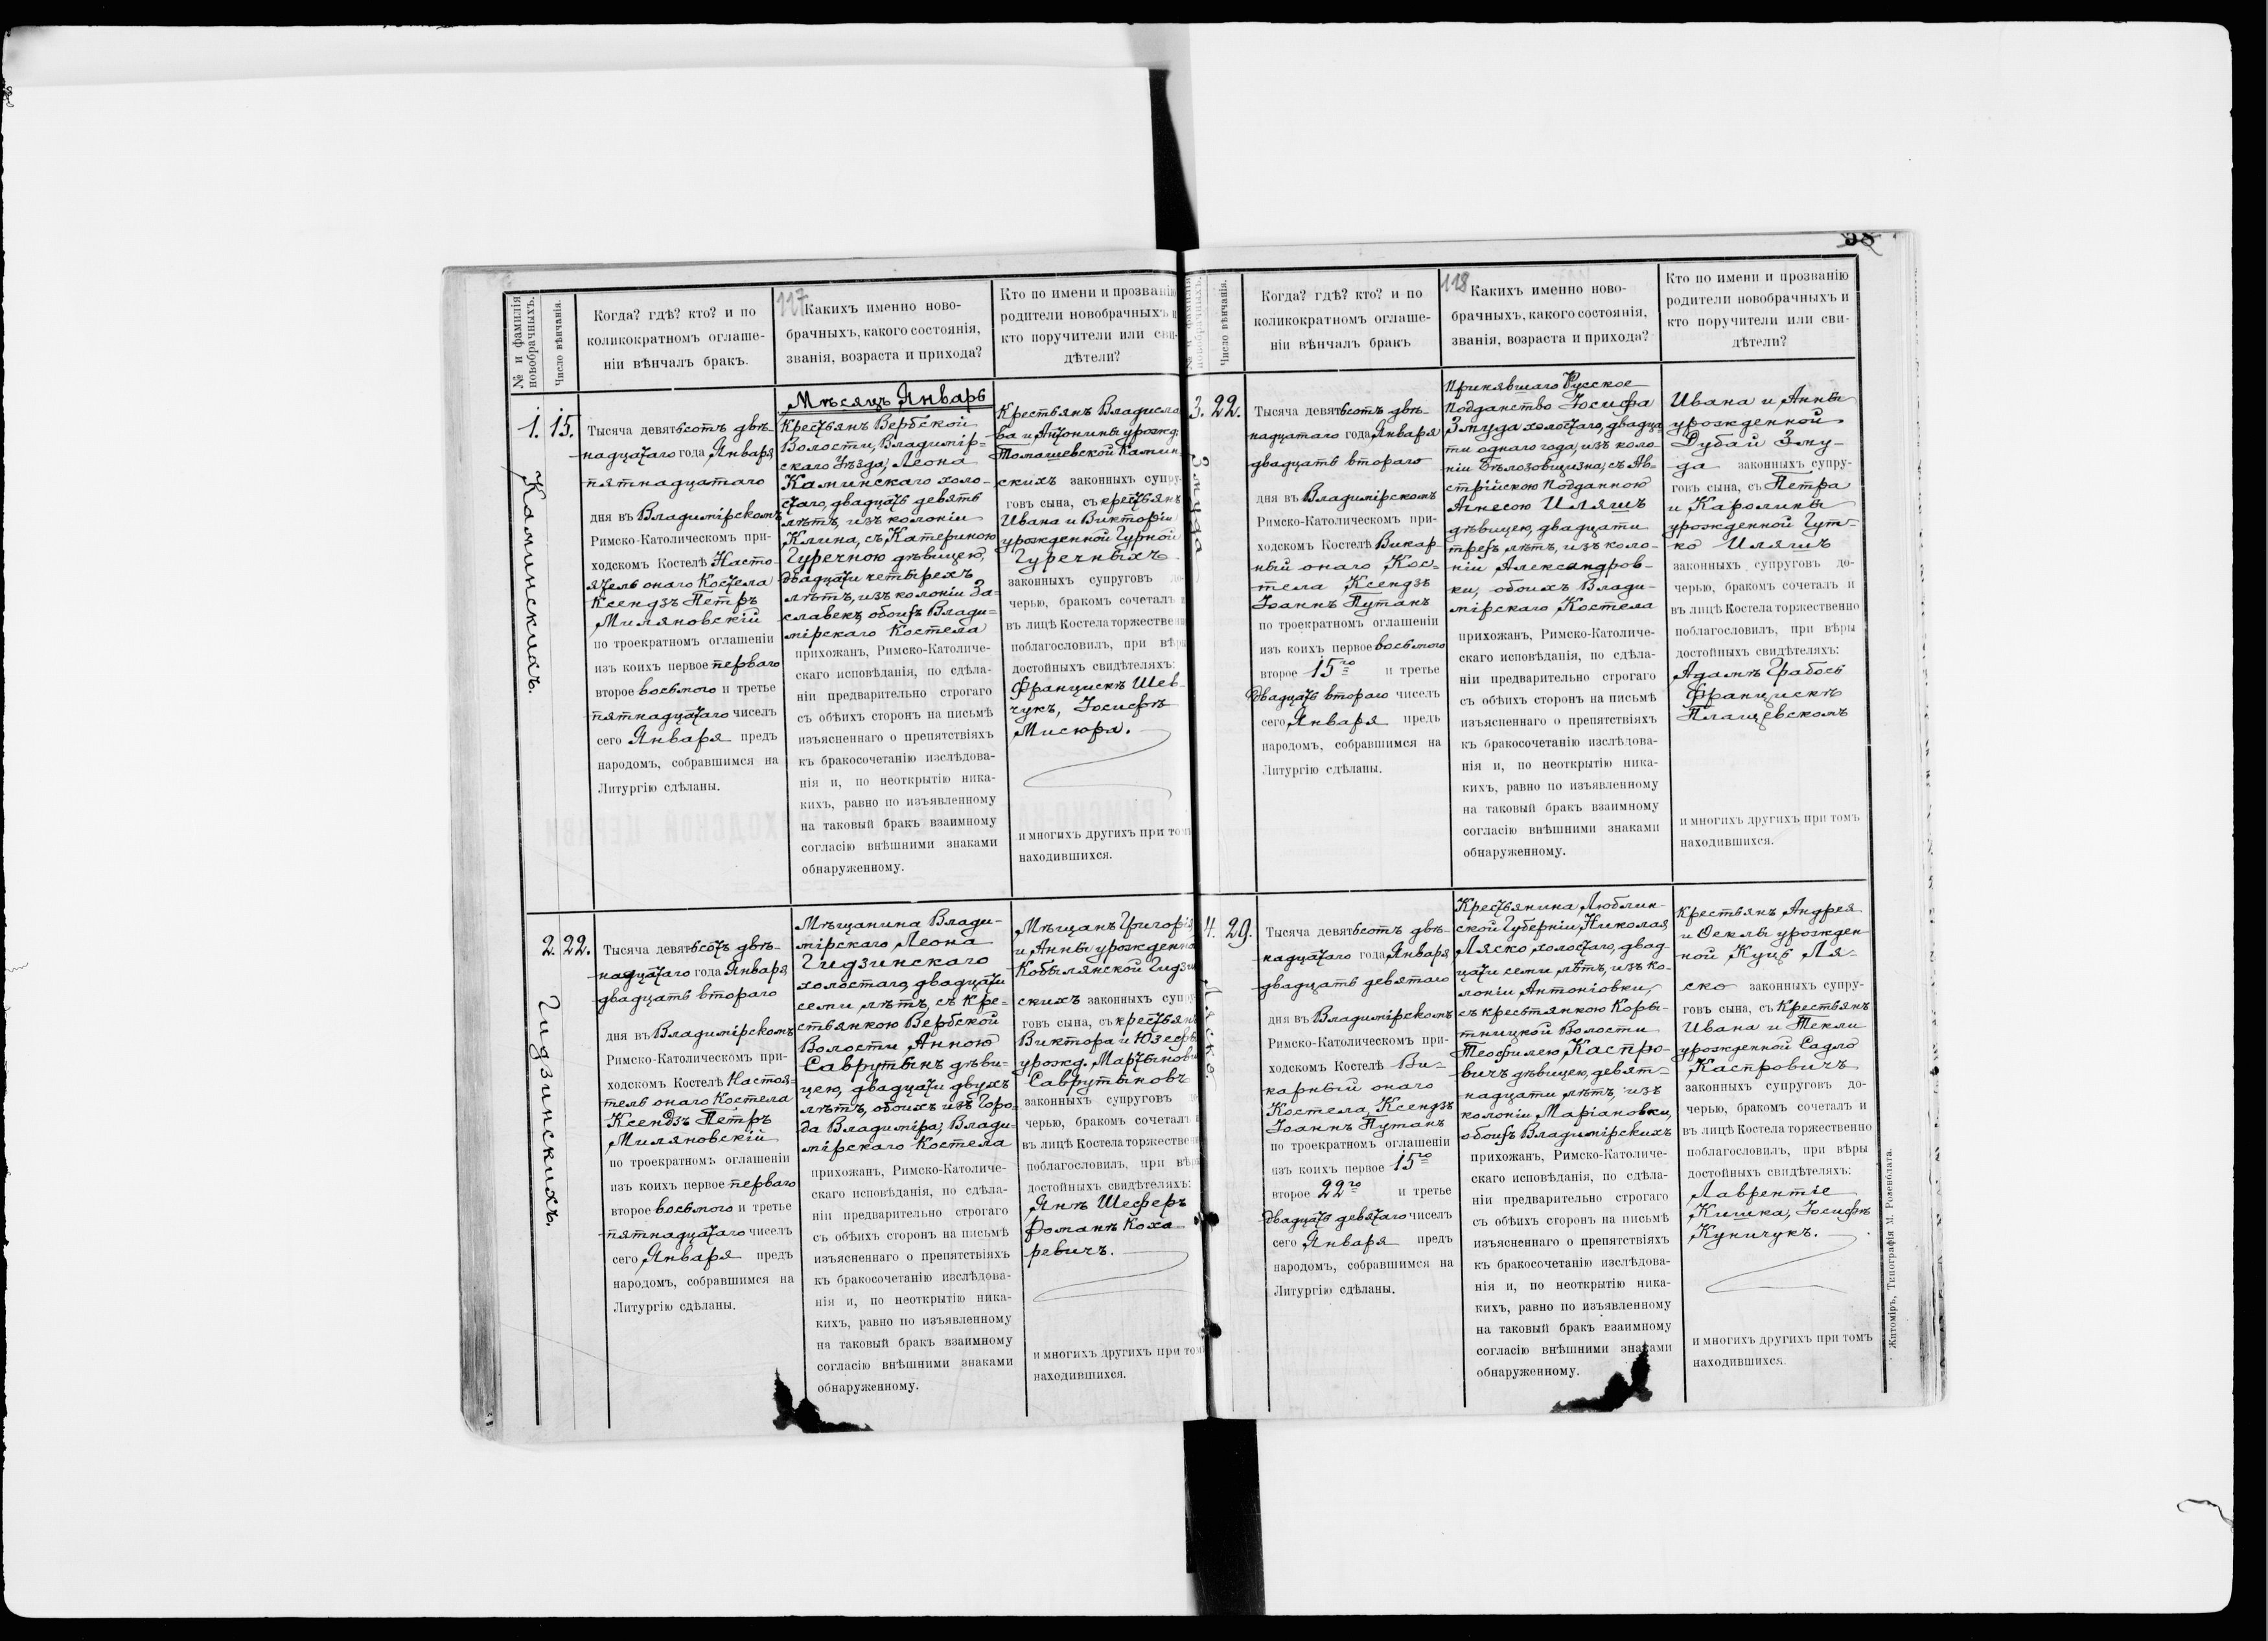 № и фамилія
новобрачныхъ.
Число вѣнчанія.
Когда? гдѣ? кто? и по
коликократномъ оглаше-
ніи вѣнчалъ бракъ.
117
Какихъ именно ново-
брачныхъ, какого состоянія,
званія, возраста и прихода?
Кто по имени и прозванію
родители новобрачныхъ и
кто поручители или сви-
дѣтели?
1.
15.
Каминскихъ.
Тысяча девятьсотъ двѣ-
надцатаго года Января
пятнадцатаго
дня въ Владимірскомъ
Римско-Католическомъ при-
ходскомъ Костелѣ Насто-
ятель онаго Костела
Ксендзъ Петръ
Миляновскій
по троекратномъ оглашеніи
изъ коихъ первое перваго
второе восьмого и третье
пятнадцатаго чиселъ
сего Января предъ
народомъ, собравшимся на
Литургію сдѣланы.
Мѣсяцъ Январь
Крестьянъ Вербской
Волости, Владимір-
скаго Уѣзда, Леона
Каминскаго холо-
стаго, двадцать девять
лѣтъ, изъ колоніи
Клина, съ Катериною
Гуречною дѣвицею,
двадцати четырехъ
лѣтъ, изъ колоніи За-
славекъ, обоихъ Влади-
мірскаго Костела
прихожанъ, Римско-Католиче-
скаго исповѣданія, по сдѣла-
ніи предварительно строгаго
съ обѣихъ сторонъ на письмѣ
изъясненнаго о препятствіяхъ
къ бракосочетанію изслѣдова-
нія и, по неоткрытію ника-
кихъ, равно по изъявленному
на таковый бракъ взаимному
согласію внѣшними знаками
обнаруженному.
Крестьянъ Владисла
ва и Антонины урожд.
Томашевской Камин
скихъ законныхъ супру-
говъ сына, съ крестьянъ
Ивана и Викторіи
урожденной Гурной
Гуречныхъ
законныхъ супруговъ до-
черью, бракомъ сочеталъ и
въ лицѣ Костела торжественно
поблагословилъ, при вѣры
достойныхъ свидѣтеляхъ:
Францискѣ Шев-
чукъ, Іосифѣ
Мисюра.
и многихъ другихъ при томъ
находившихся.
2.
22.
Гидзинскихъ.
Тысяча девятьсотъ двѣ-
надцатаго года Января
двадцать втораго
дня въ Владимірскомъ
Римско-Католическомъ при-
ходскомъ Костелѣ Настоя-
тель онаго Костела
Ксендзъ Петръ
Миляновскій
по троекратномъ оглашеніи
изъ коихъ первое перваго
второе восьмого и третье
пятнадцатаго чиселъ
сего Января предъ
народомъ, собравшимся на
Литургію сдѣланы.
Мѣщанина Влади-
мірскаго Леона
Гидзинскаго
холостаго, двадцати
семи лѣтъ, съ Кре-
стьянкою Вербской
Волости Анною
Саврутынъ дѣви-
цею, двадцати двухъ
лѣтъ, обоихъ изъ Горо-
да Владиміра, Влади-
мірскаго Костела
прихожанъ, Римско-Католиче-
скаго исповѣданія, по сдѣла-
ніи предварительно строгаго
съ обѣихъ сторонъ на письмѣ
изъясненнаго о препятствіяхъ
къ бракосочетанію изслѣдова-
нія и, по неоткрытію ника-
кихъ, равно по изъявленному
на таковый бракъ взаимному
согласію внѣшними знаками
обнаруженному.
Мѣщанъ Григорія
и Анны урожденно
Кобылянской Гидзи
скихъ законныхъ супру
говъ сына, съ крестьянъ
Виктора и Юзефы
урожд. Мартынови
Саврутыновъ
законныхъ супруговъ до
черью, бракомъ сочеталъ и
въ лицѣ Костела торжественно
поблагословилъ, при вѣры
достойныхъ свидѣтеляхъ:
Янѣ Шеферъ
Романѣ Коха-
ревичъ.
и многихъ другихъ при томъ
находившихся.
58
№ и фамилія
новобрачныхъ.
Число вѣнчанія.
Когда? гдѣ? кто? и по
коликократномъ оглаше-
ніи вѣнчалъ бракъ
118
Какихъ именно ново-
брачныхъ, какого состоянія,
званія, возраста и прихода?
Кто по имени и прозванію
родители новобрачныхъ и
кто поручители или сви-
дѣтели?
3.
22.
Змуда
Тысяча девятьсотъ двѣ-
надцатаго года Января
двадцать втораго
дня въ Владимірскомъ
Римско-Католическомъ при-
ходскомъ Костелѣ Викар-
ный онаго Кос-
тела Ксендзъ
Іоаннъ Путанъ
по троекратномъ оглашеніи
изъ коихъ первое восьмого
второе 15го и третье
двадцать втораго чиселъ
сего Января предъ
народомъ, собравшимся на
Литургію сдѣланы.
Принявшаго Русское
Подданство Іосифа
Змуда холостаго, двадца
ти одного года, изъ коло-
ніи Бѣлозовщизна, съ Ав-
стрійскою Подданною
Агнесою Иляшъ
дѣвицею, двадцати
трехъ лѣтъ, изъ коло-
ніи Александров-
ки, обоихъ Влади-
мірскаго Костела
прихожанъ, Римско-Католиче-
скаго исповѣданія, по сдѣла-
ніи предварительно строгаго
съ обѣихъ сторонъ на письмѣ
изъясненнаго о препятствіяхъ
къ бракосочетанію изслѣдова-
нія и, по неоткрытію ника-
кихъ, равно по изъявленному
на таковый бракъ взаимному
согласію внѣшними знаками
обнаруженному.
Ивана и Анны
урожденной
Дубай Зму-
да законныхъ супру-
говъ сына, съ Петра
и Каролины
урожденной Гут-
ко Иляшъ
законныхъ супруговъ до-
черью, бракомъ сочеталъ и
въ лицѣ Костела торжественно
поблагословилъ, при вѣры
достойныхъ свидѣтеляхъ:
Адамѣ Грабось
Францискѣ
Плащевскомъ
и многихъ другихъ при томъ
находившихся.
4.
29.
Ляско.
Тысяча девятьсотъ двѣ-
надцатаго года Января
двадцать девятаго
дня въ Владимірскомъ
Римско-Католическомъ при-
ходскомъ Костелѣ Ви-
карный онаго
Костела, Ксендзъ
Іоаннъ Путанъ
по троекратномъ оглашеніи
изъ коихъ первое 15го
второе 22го и третье
двадцать девятаго чиселъ
сего Января предъ
народомъ, собравшимся на
Литургію сдѣланы.
Крестьянина Люблин-
ской Губерніи, Николая
Ляско холостаго, двад-
цати семи лѣтъ, изъ ко-
лоніи Антоніовки,
съ крестьянкою Коры-
тницкой Волости
Теофилею Каспро-
вичъ дѣвицею, девят-
надцати лѣтъ, изъ
колоніи Маріановки,
обоихъ Владимірскихъ
прихожанъ, Римско-Католиче-
скаго исповѣданія, по сдѣла-
ніи предварительно строгаго
съ обѣихъ сторонъ на письмѣ
изъясненнаго о препятствіяхъ
къ бракосочетанію изслѣдова-
нія и, по неоткрытію ника-
кихъ, равно по изъявленному
на таковый бракъ взаимному
согласію внѣшними знаками
обнаруженному.
Крестьянъ Андрея
и Ѳеклы урожден-
ной Куцъ Ля-
ско законныхъ супру-
говъ сына, съ Крестьянъ
Ивана и Текли
урожденной Садло
Каспровичъ
законныхъ супруговъ до-
черью, бракомъ сочеталъ и
въ лицѣ Костела торжественно
поблагословилъ, при вѣры
достойныхъ свидѣтеляхъ:
Лаврентіе
Кишка, Іосифѣ
Куничукъ.
и многихъ другихъ при томъ
находившихся.
Житоміръ, Типографія М. Розенблата.